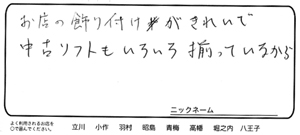 お店の飾り付けがきれいで
中古ソフトもいろいろ揃っているから
ニックネーム
よく利用されるお店を
○で選んでください。
立川 小作 羽村 昭島 青梅 高幡 堀之内 八王子